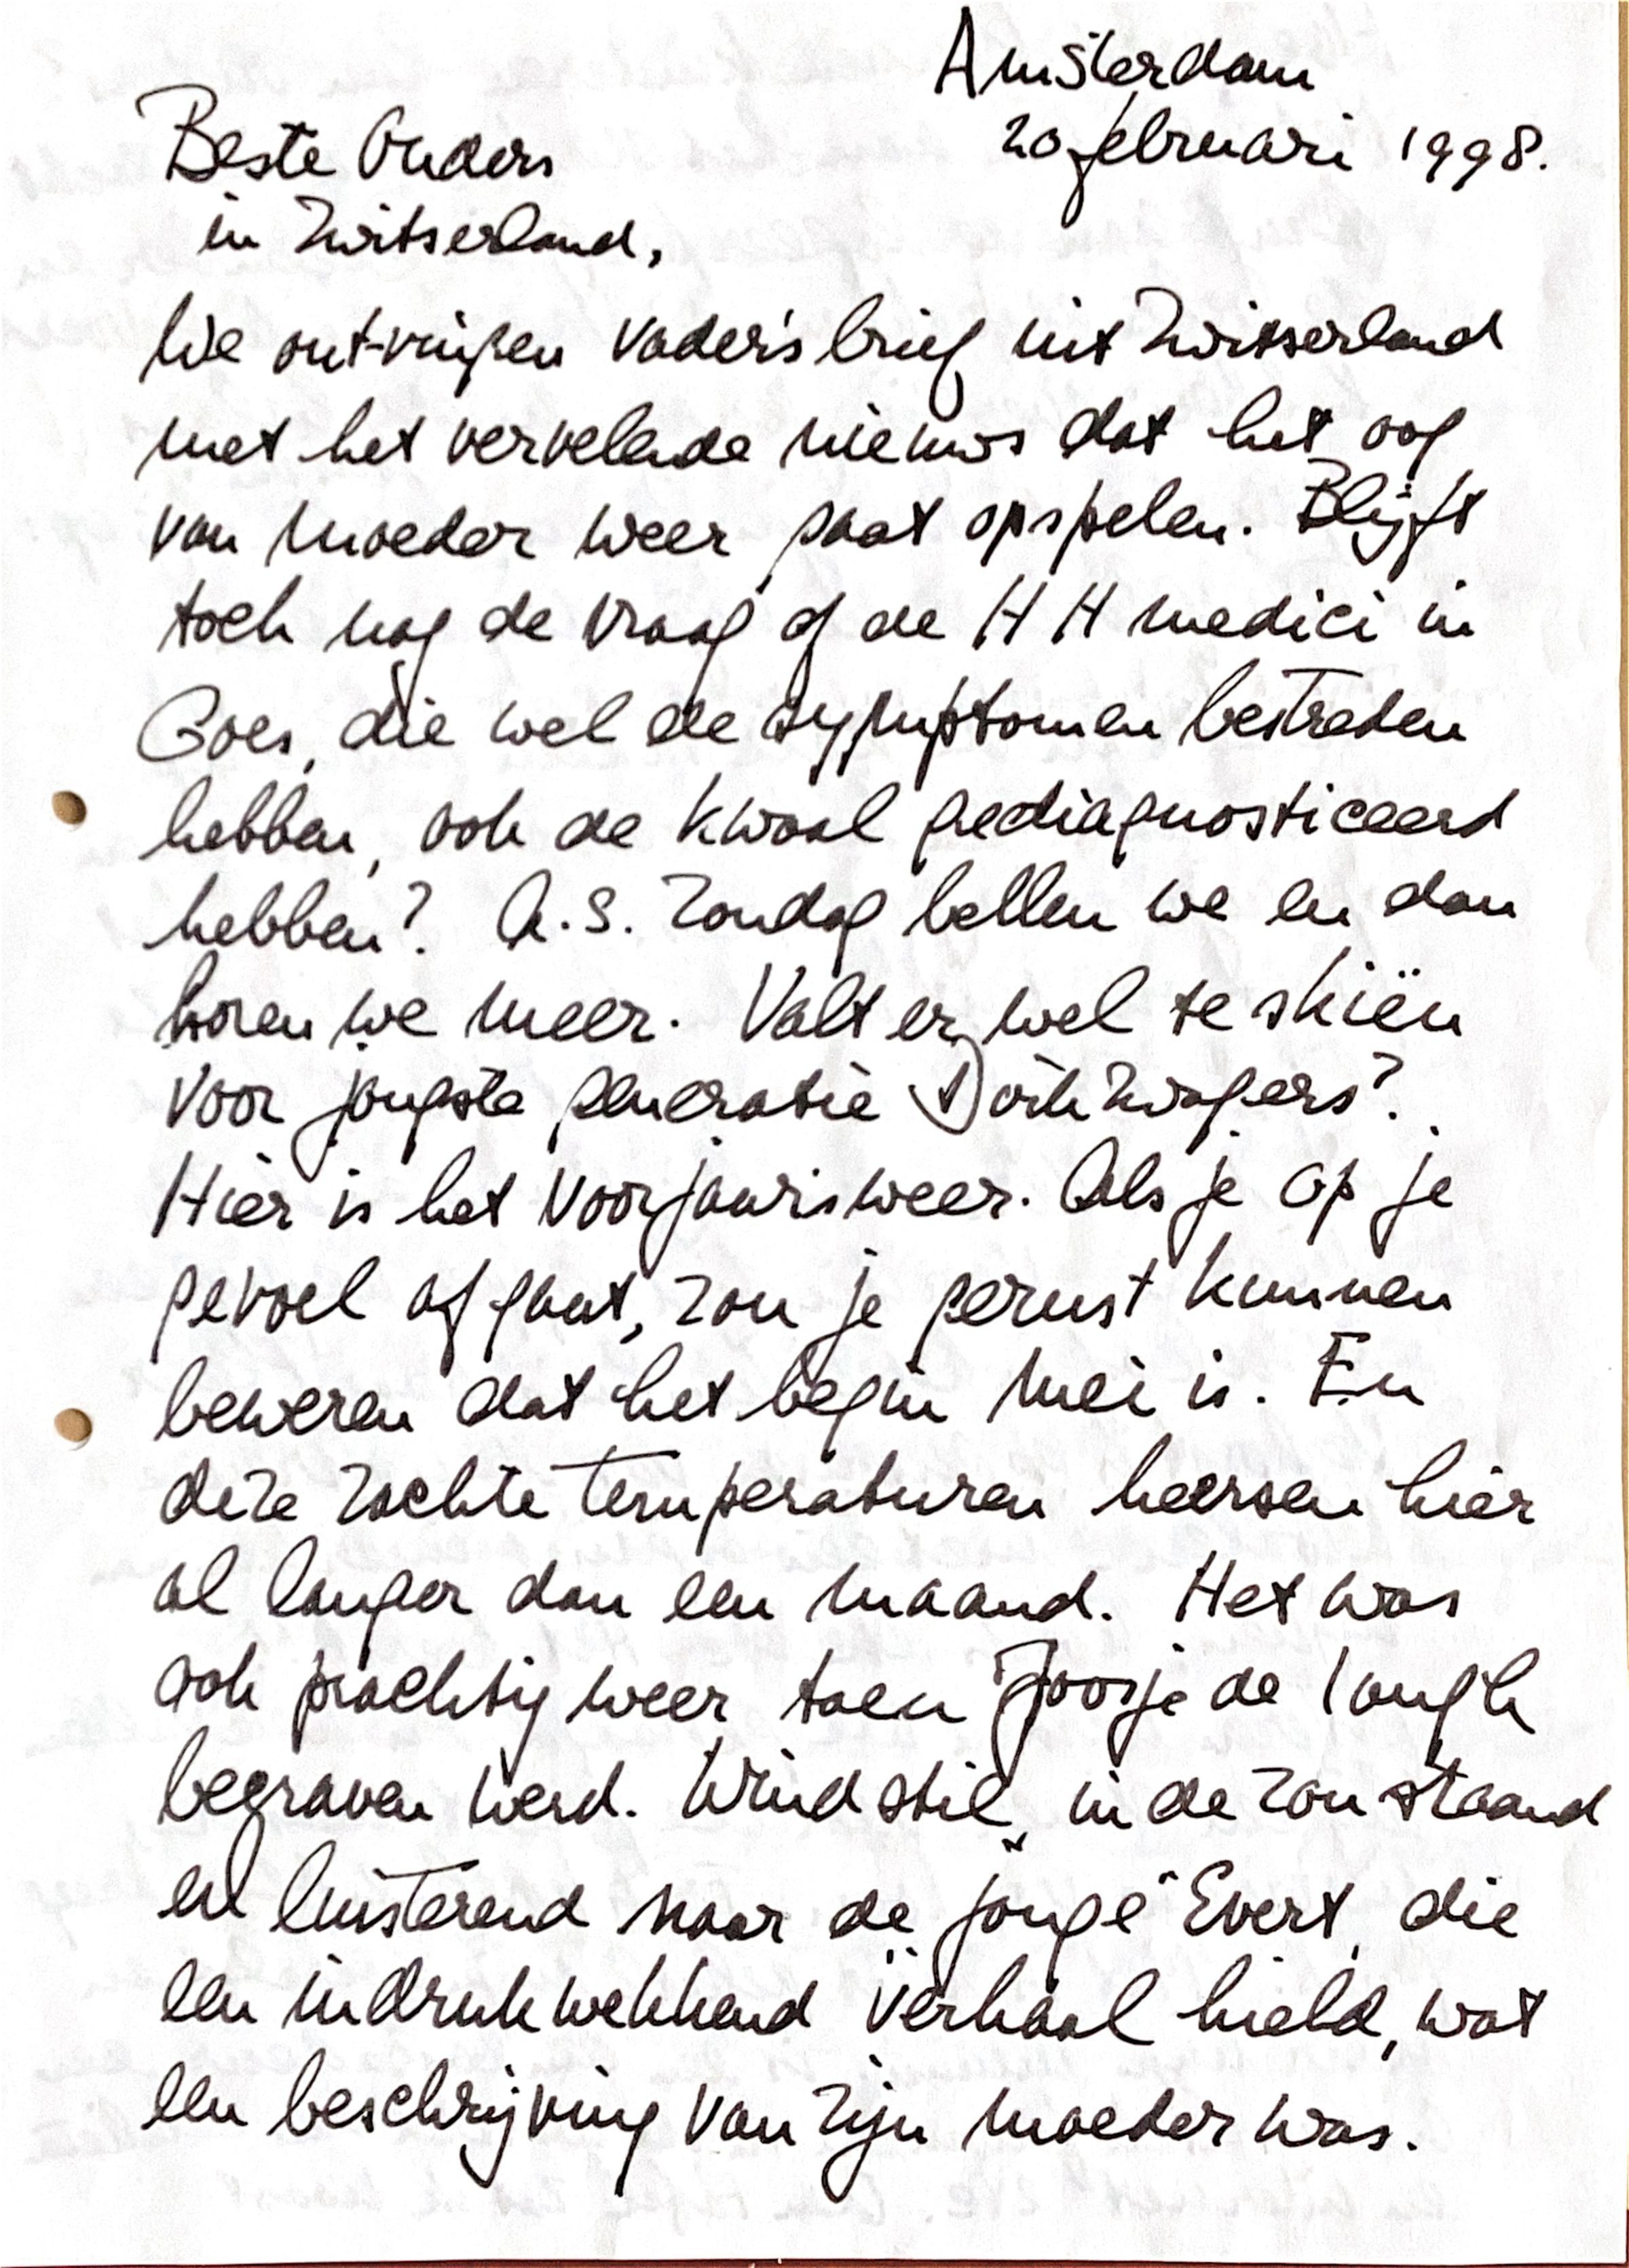 Amsterdam
20 februari 1998.
Beste Ouders
in Zwitserland,
We ontvingen vader's brief uit Zwitserland
met het vervelende nieuws dat het oog
van moeder weer gaat opspelen. Blijft
toch nog de vraag of de HH medici in
Goes, die wel de symptomen bestreden
hebben, ook de kwaal gediagnosticeerd
hebben? A.S. Zondag bellen we en dan
horen we meer. Valt er wel te skiën
voor jongste generatie Dörhzwagers?
Hier is het voorjaarsweer. Als je op je
gevoel afgaat, zou je gerust kunnen
beweren dat het begin mei is. En
deze zachte temperaturen heersen hier
al langer dan een maand. Het was
ook prachtig weer toen Joosje de Jongh
begraven werd. Windstil, in de zon staand
en luisterend naar de "jonge" Evert, die
een indrukwekkend verhaal hield, wat
een beschrijving van zijn moeder was.